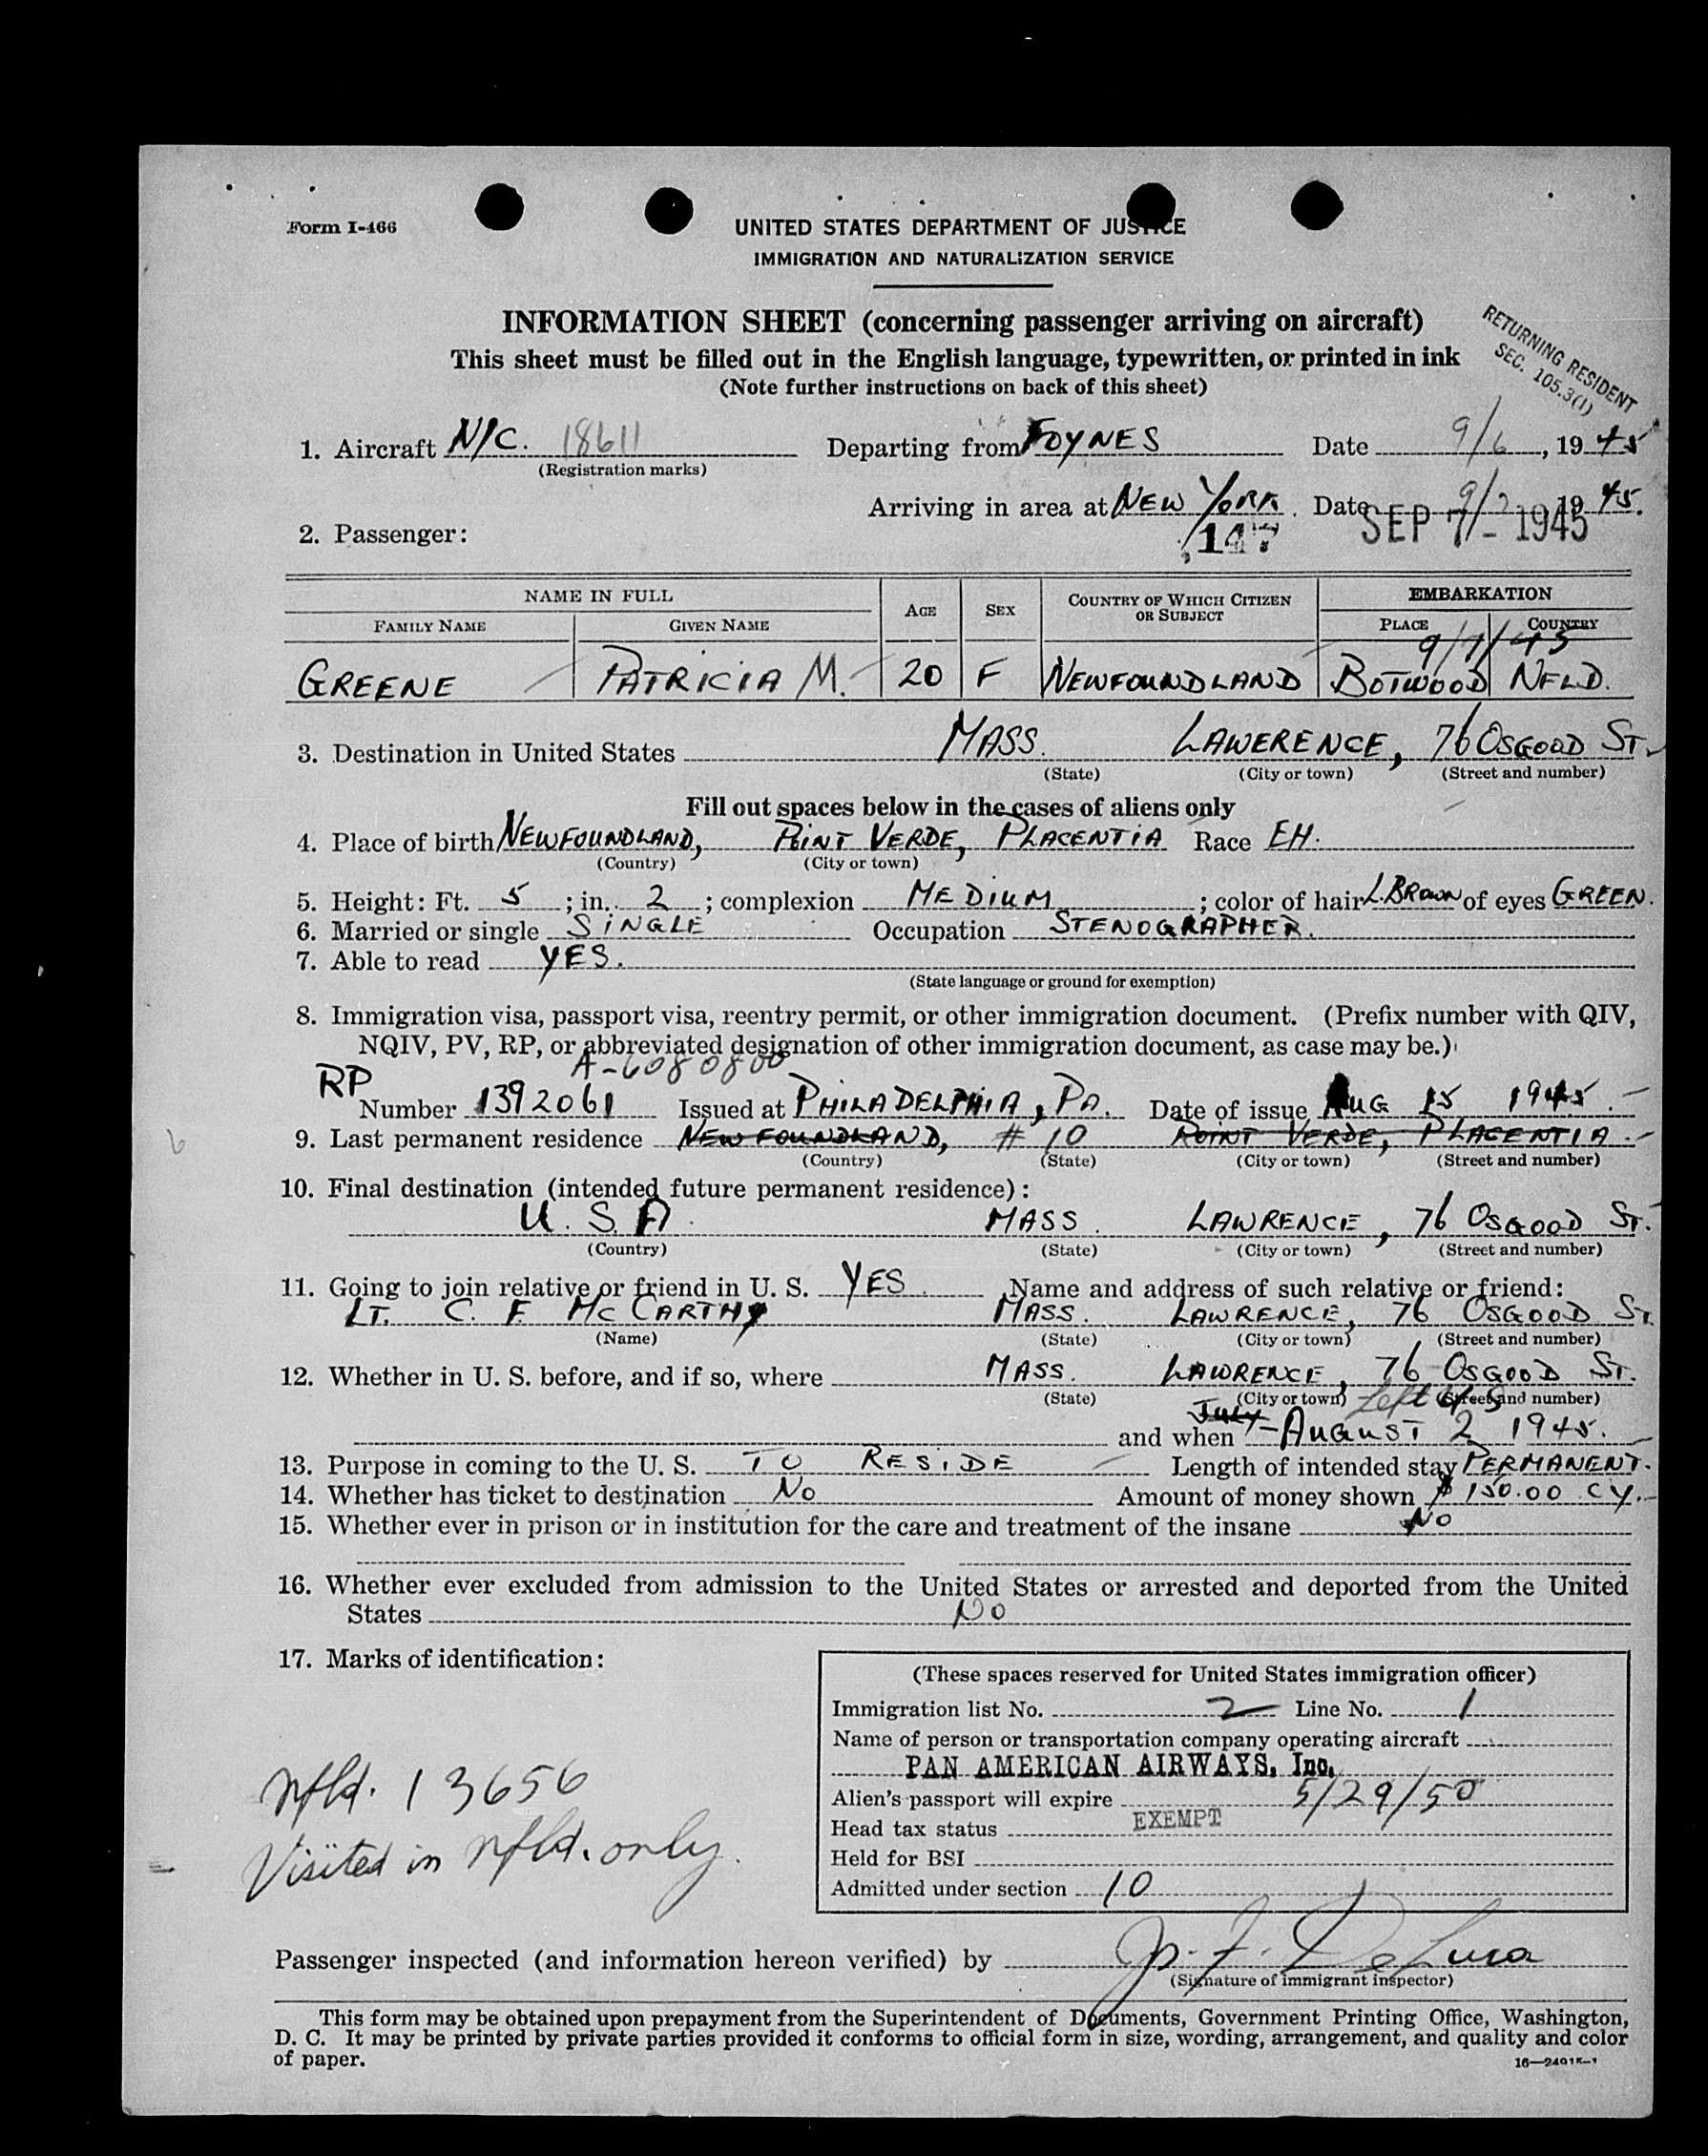 Form I-466
UNITED STATES DEPARTMENT OF JUSTICE
IMMIGRATION AND NATURALIZATION SERVICE
INFORMATION SHEET (concerning passenger arriving on aircraft)
This sheet must be filled out in the English language, typewritten, or printed in ink
(Note further instructions on back of this sheet)
RETURNING RESIDENT
SEC. 105.3(1)
1. Aircraft N/C. 18611 Departing from FOYNES Date 9/6, 1945
(Registration marks)
Arriving in area at NEW YORK. Date 9/7 1945.
2. Passenger: 147 SEP 7 - 1945
NAME IN FULL AGE SEX COUNTRY OF WHICH CITIZEN OR SUBJECT EMBARKATION
FAMILY NAME GIVEN NAME PLACE COUNTRY
9/7/45
GREENE PATRICIA M. 20 F NEWFOUNDLAND BOTWOOD NFLD.
3. Destination in United States MASS. LAWERENCE, 76 OSGOOD ST.
(State) (City or town) (Street and number)
Fill out spaces below in the cases of aliens only
4. Place of birth NEWFOUNDLAND, POINT VERDE, PLACENTIA Race EH.
(Country) (City or town)
5. Height: Ft. 5; in. 2; complexion MEDIUM; color of hair L.BROWN of eyes GREEN.
6. Married or single SINGLE Occupation STENOGRAPHER.
7. Able to read YES.
(State language or ground for exemption)
8. Immigration visa, passport visa, reentry permit, or other immigration document. (Prefix number with QIV,
NQIV, PV, RP, or abbreviated designation of other immigration document, as case may be.)
A-6080800
RP Number 1392061 Issued at PHILADELPHIA, PA. Date of issue AUG 15 1945.
9. Last permanent residence NEWFOUNDLAND, # 10 POINT VERDE, PLACENTIA.
(Country) (State) (City or town) (Street and number)
10. Final destination (intended future permanent residence):
U. S. A. MASS. LAWRENCE, 76 OSGOOD ST.
(Country) (State) (City or town) (Street and number)
11. Going to join relative or friend in U. S. YES. Name and address of such relative or friend:
LT. C. F. McCARTHY MASS. LAWRENCE, 76 OSGOOD ST.
(Name) (State) (City or town) (Street and number)
12. Whether in U. S. before, and if so, where MASS. LAWRENCE, 76 OSGOOD ST.
(State) (City or town) (Street and number)
Left
and when July - AUGUST 2 1945.
13. Purpose in coming to the U. S. TO RESIDE Length of intended stay PERMANENT.
14. Whether has ticket to destination NO Amount of money shown $ 150.00 CY.
15. Whether ever in prison or in institution for the care and treatment of the insane NO
16. Whether ever excluded from admission to the United States or arrested and deported from the United
States NO
17. Marks of identification:
Nfld. 13656
Visited in Nfld. only.
(These spaces reserved for United States immigration officer)
Immigration list No. 2 Line No. 1
Name of person or transportation company operating aircraft
PAN AMERICAN AIRWAYS, Inc.
Alien's passport will expire 5/29/50
Head tax status EXEMPT
Held for BSI
Admitted under section 10
Passenger inspected (and information hereon verified) by J. F. DeLuca
(Signature of immigrant inspector)
This form may be obtained upon prepayment from the Superintendent of Documents, Government Printing Office, Washington,
D. C. It may be printed by private parties provided it conforms to official form in size, wording, arrangement, and quality and color
of paper.